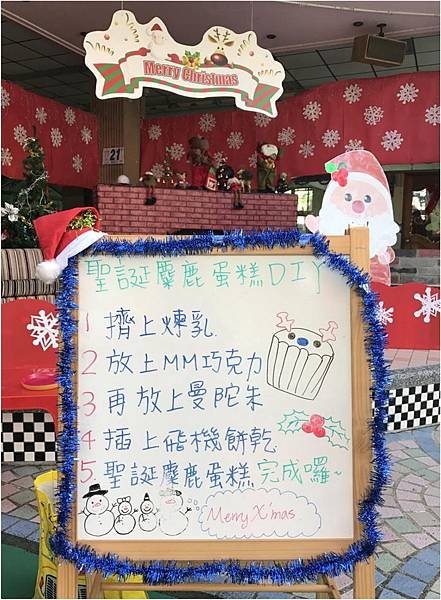 Merry Christmas
21
聖誕麋鹿蛋糕DIY
1 擠上煉乳
2 放上MM巧克力
3 再放上曼陀朱
4 插上飛機餅乾
5 聖誕麋鹿蛋糕完成囉~
Merry X'mas